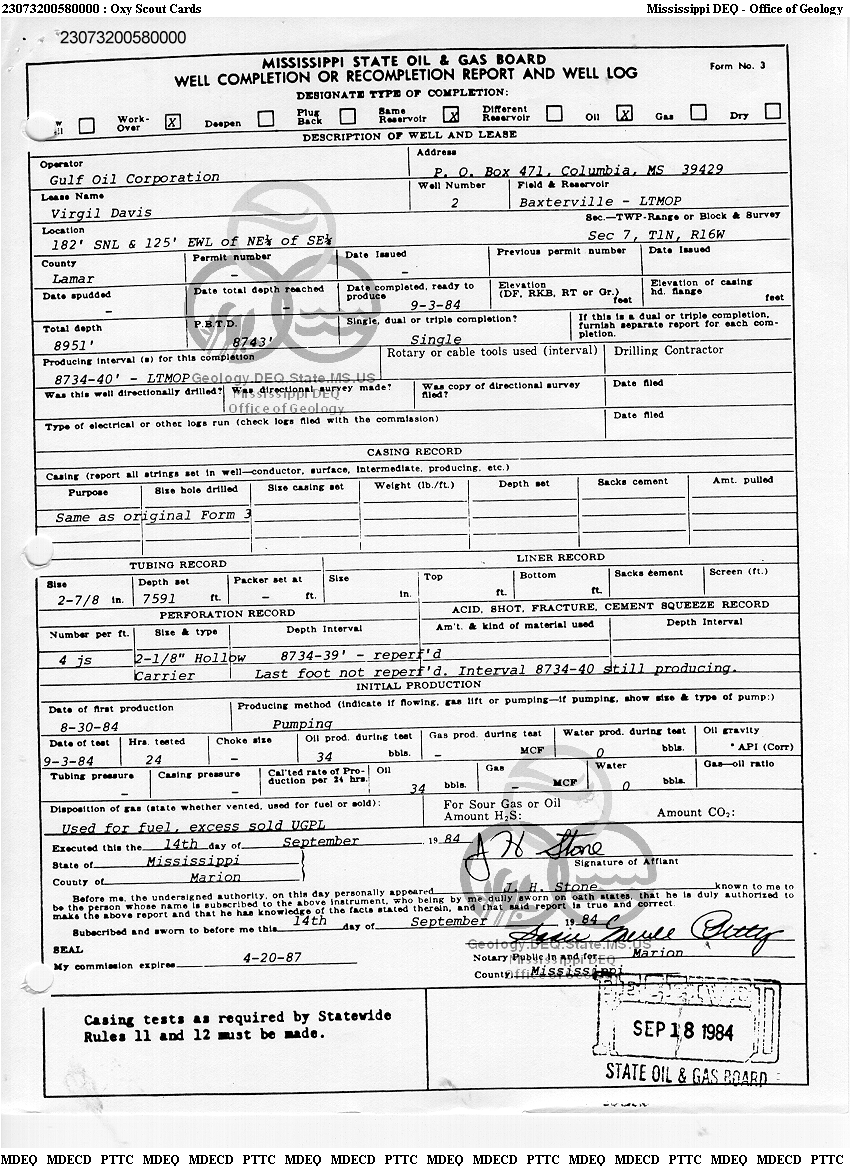 23073200580000 : Oxy Scout Cards Mississippi DEQ - Office of Geology
23073200580000
MISSISSIPPI STATE OIL & GAS BOARD Form No. 3
WELL COMPLETION OR RECOMPLETION REPORT AND WELL LOG
DESIGNATE TYPE OF COMPLETION:
Work-Over X Deepen Plug Back Same Reservoir X Different Reservoir Oil X Gas Dry
DESCRIPTION OF WELL AND LEASE
Operator Address
Gulf Oil Corporation P. O. Box 471, Columbia, MS 39429
Lease Name Well Number Field & Reservoir
Virgil Davis 2 Baxterville - LTMOP
Location Sec.—TWP-Range or Block & Survey
182' SNL & 125' EWL of NE¼ of SE¼ Sec 7, T1N, R16W
County Permit number Date Issued Previous permit number Date Issued
Lamar - -
Date spudded Date total depth reached Date completed, ready to produce Elevation (DF, RKB, RT or Gr.) feet Elevation of casing hd. flange feet
- - 9-3-84
Total depth P.B.T.D. Single, dual or triple completion? If this is a dual or triple completion, furnish separate report for each completion.
8951' 8743' Single
Producing interval (s) for this completion Rotary or cable tools used (interval) Drilling Contractor
8734-40' - LTMOP
Geology.DEQ.State.MS.US
Was this well directionally drilled? Was directional survey made? Was copy of directional survey filed? Date filed
Mississippi DEQ
Office of Geology
Type of electrical or other logs run (check logs filed with the commission) Date filed
CASING RECORD
Casing (report all strings set in well—conductor, surface, intermediate, producing, etc.)
Purpose Size hole drilled Size casing set Weight (lb./ft.) Depth set Sacks cement Amt. pulled
Same as original Form 3
TUBING RECORD LINER RECORD
Size Depth set Packer set at Size Top Bottom Sacks cement Screen (ft.)
2-7/8 in. 7591 ft. - ft. in. ft. ft.
PERFORATION RECORD ACID, SHOT, FRACTURE, CEMENT SQUEEZE RECORD
Number per ft. Size & type Depth Interval Am't. & kind of material used Depth Interval
4 js 2-1/8" Hollow 8734-39' - reperf'd
Carrier Last foot not reperf'd. Interval 8734-40 still producing.
INITIAL PRODUCTION
Date of first production Producing method (indicate if flowing, gas lift or pumping—if pumping, show size & type of pump:)
8-30-84 Pumping
Date of test Hrs. tested Choke size Oil prod. during test Gas prod. during test Water prod. during test Oil gravity
9-3-84 24 - 34 bbls. - MCF 0 bbls. ° API (Corr)
Tubing pressure Casing pressure Cal'ted rate of Production per 24 hrs. Oil Gas Water Gas—oil ratio
- - 34 bbls. - MCF 0 bbls.
Disposition of gas (state whether vented, used for fuel or sold): For Sour Gas or Oil
Amount H2S: Amount CO2:
Used for fuel, excess sold UGPL
Executed this the 14th day of September 19 84
J H Stone
State of Mississippi Signature of Affiant
County of Marion
Before me, the undersigned authority, on this day personally appeared J. H. Stone known to me to
be the person whose name is subscribed to the above instrument, who being by me dully sworn on oath states, that he is duly authorized to
make the above report and that he has knowledge of the facts stated therein, and that said report is true and correct.
Subscribed and sworn to before me this 14th day of September 19 84
Geology.DEQ.State.MS.US
SEAL
Notary Public in and for Marion
Mississippi DEQ
My commission expires 4-20-87
County, Mississippi
Office of Geology
Casing tests as required by Statewide
Rules 11 and 12 must be made.
RECEIVED
SEP 18 1984
STATE OIL & GAS BOARD
MDEQ MDECD PTTC MDEQ MDECD PTTC MDEQ MDECD PTTC MDEQ MDECD PTTC MDEQ MDECD PTTC MDEQ MDECD PTTC